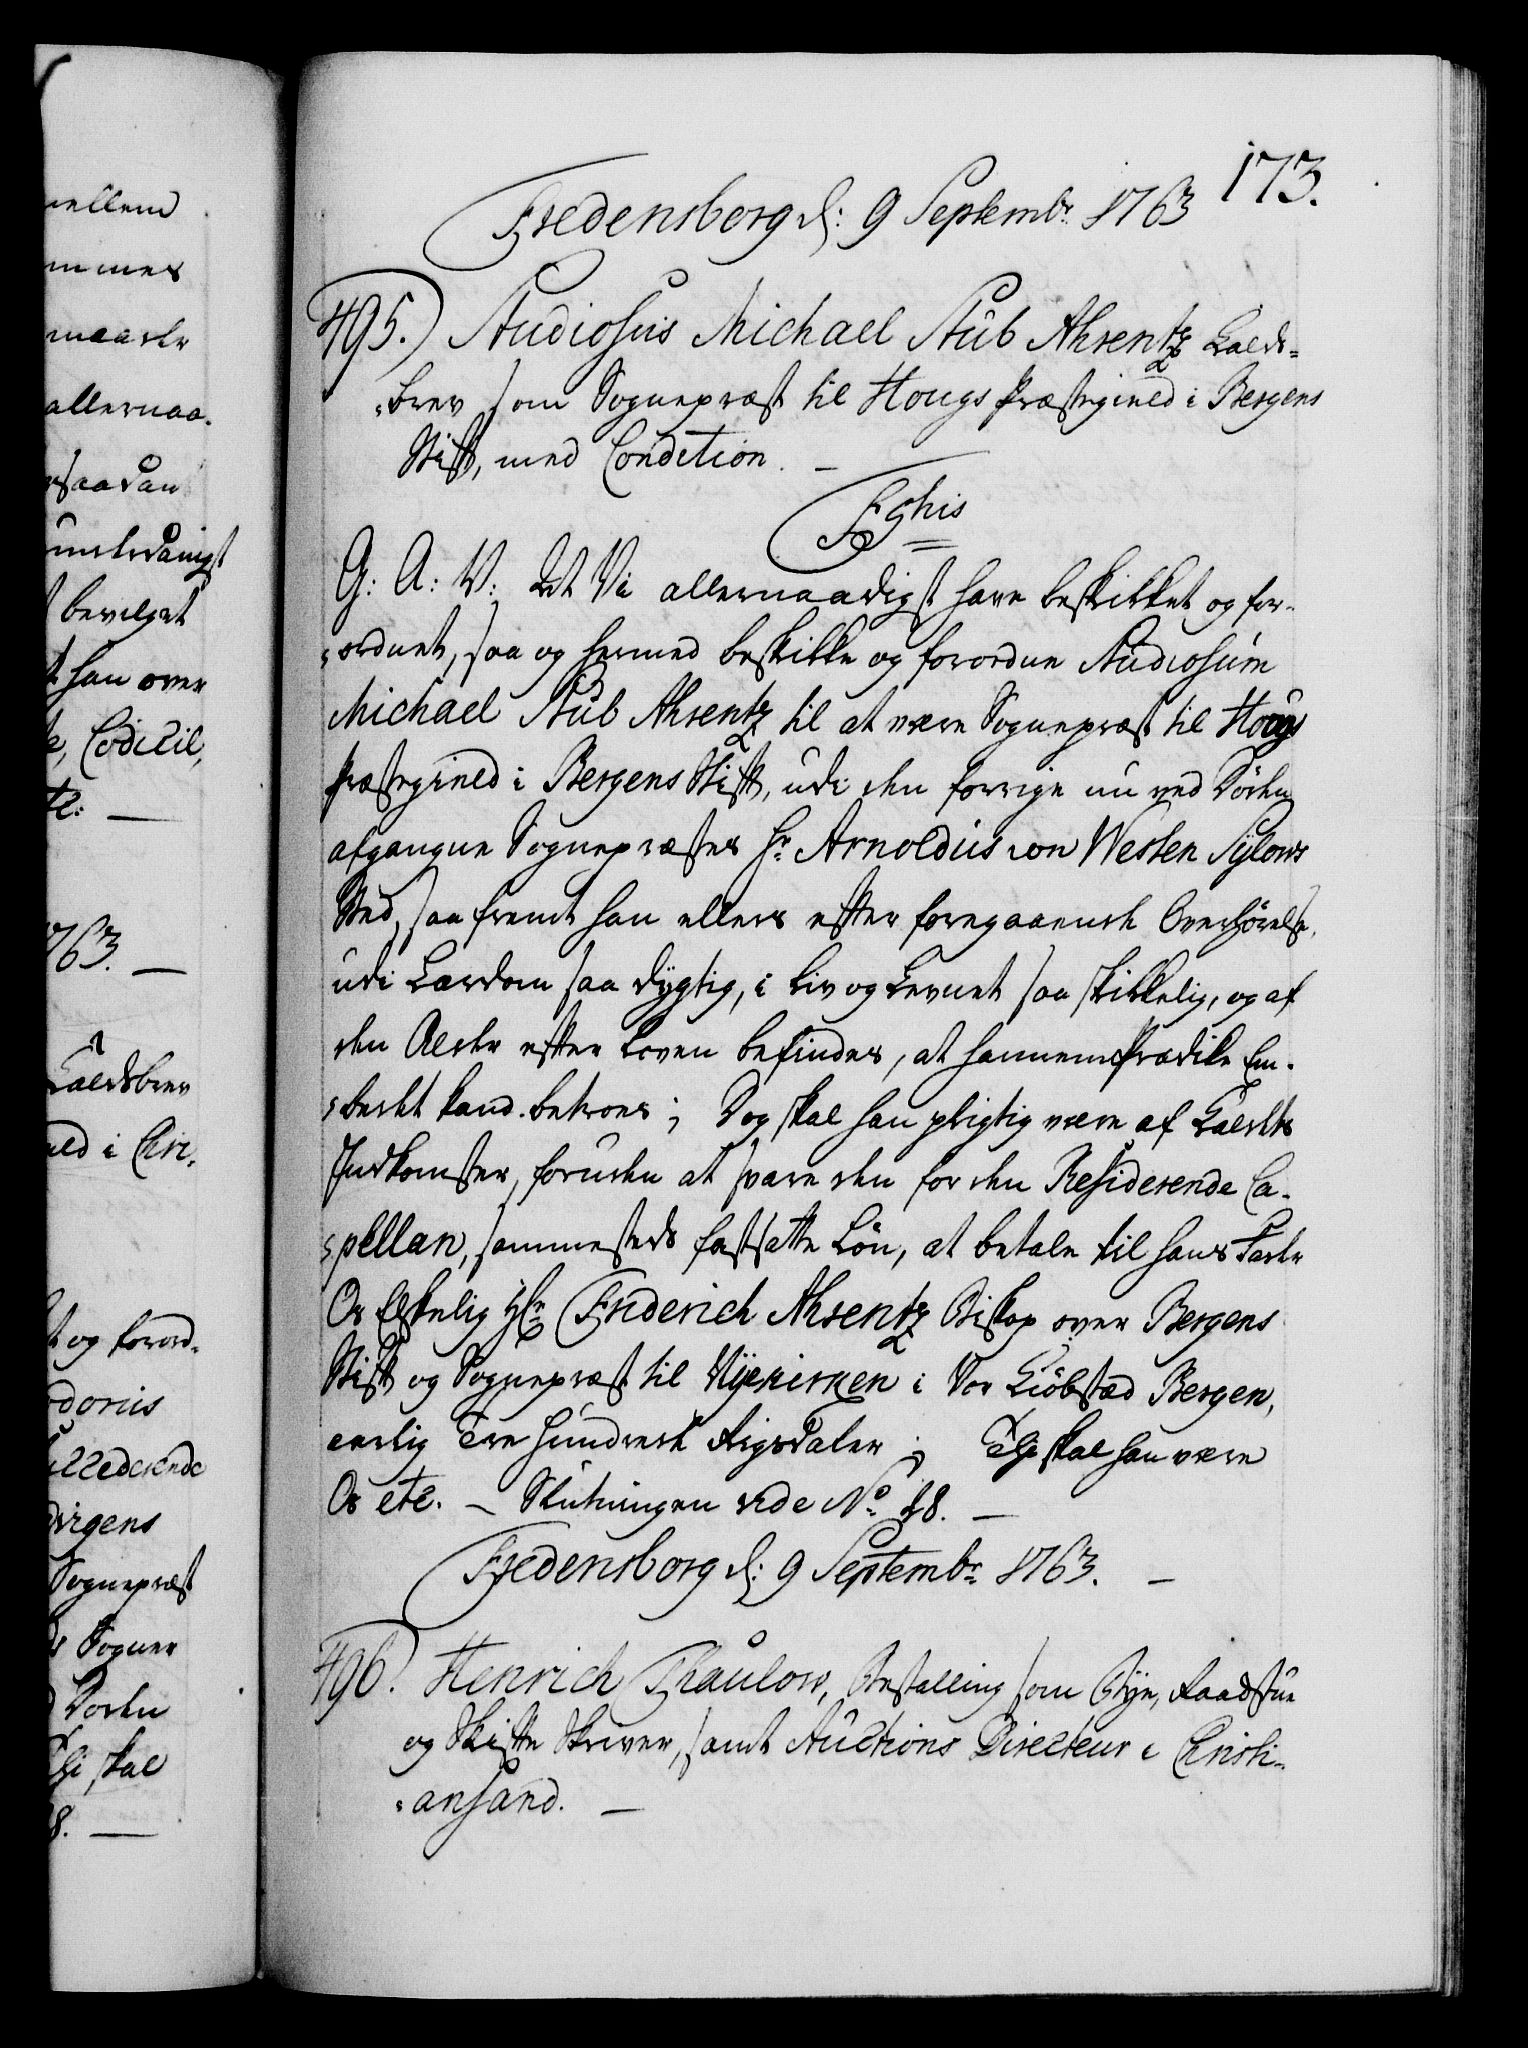 mellem
mmes
maatte
allernaa-
saadan
underdanigst
bevilget
han over
e, Codicil,
etc: —
1763. —
Kaldsbrev
æld i Chri-
og forord-
Sognepræst
Sogner
Døden
Thi skal
8. —
173.
Fredensborg d: 9 Septembr 1763
495.) Studiosus Michael Stub Ahrentz Kalds-
brev som Sognepræst til Hougs Præstegield i Bergens
Stift, med Condition. —
F5this
G: A: V: At Vi allernaadigst have beskikket og for-
ordnet, saa og hermed beskikke og forordne Studiosum
Michael Stub Ahrentz til at være Sognepræst til Hougs
Præstegield i Bergens Stift, udi den forrige nu ved Døden
afgangne Sognepræstes Hr Arnoldus von Westen Sylows
Sted, saafremt han ellers efter foregaaende Overhørelse,
udi Lærdom saa dygtig, i Liv og Levnet saa skikkelig, og af
den Alder efter Loven befindes, at hannem Prædike Em-
bedet kand betroes; Dog skal han pligtig være af Kaldets
Indkomster, foruden at svare den for den Residerende Ca-
pellan, sammesteds fastsatte Løn, at betale til hans Fader
Os Elskelig Hr Friderich Ahrentz Biskop over Bergens
Stift og Sognepræst til Nyekirken i Vor Kiöbstæd Bergen,
aarlig Tre hundrede Rigsdaler; Thi skal han være
Os etc. — Slutningen vide No 18. —
Fredensborg d: 9 Septembr 1763. —
496. Henrich Thaulow, Bestalling som Bye, Raadstue
og Skifte Skriver, samt Auctions Directeur i Christi-
ansand. —